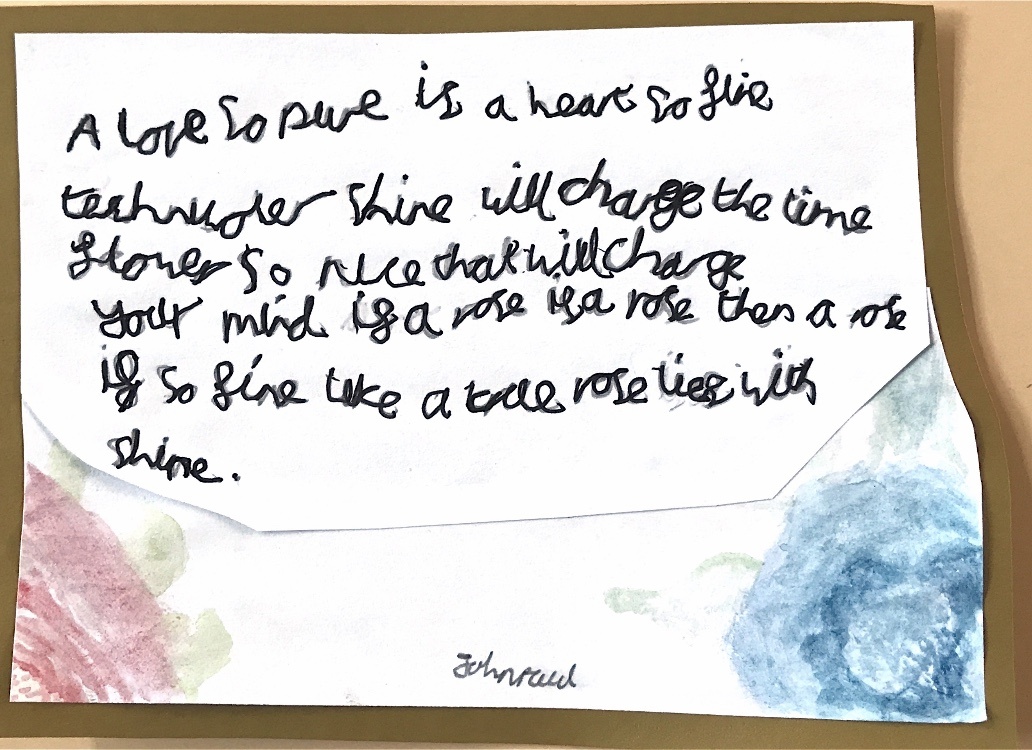 A love so pure is a heart so fine
technicoler shine will change the time
flower so nice that will change
your mind if a rose is a rose then a rose
if so fine take a true rose lies with
shine.
Johnpaul